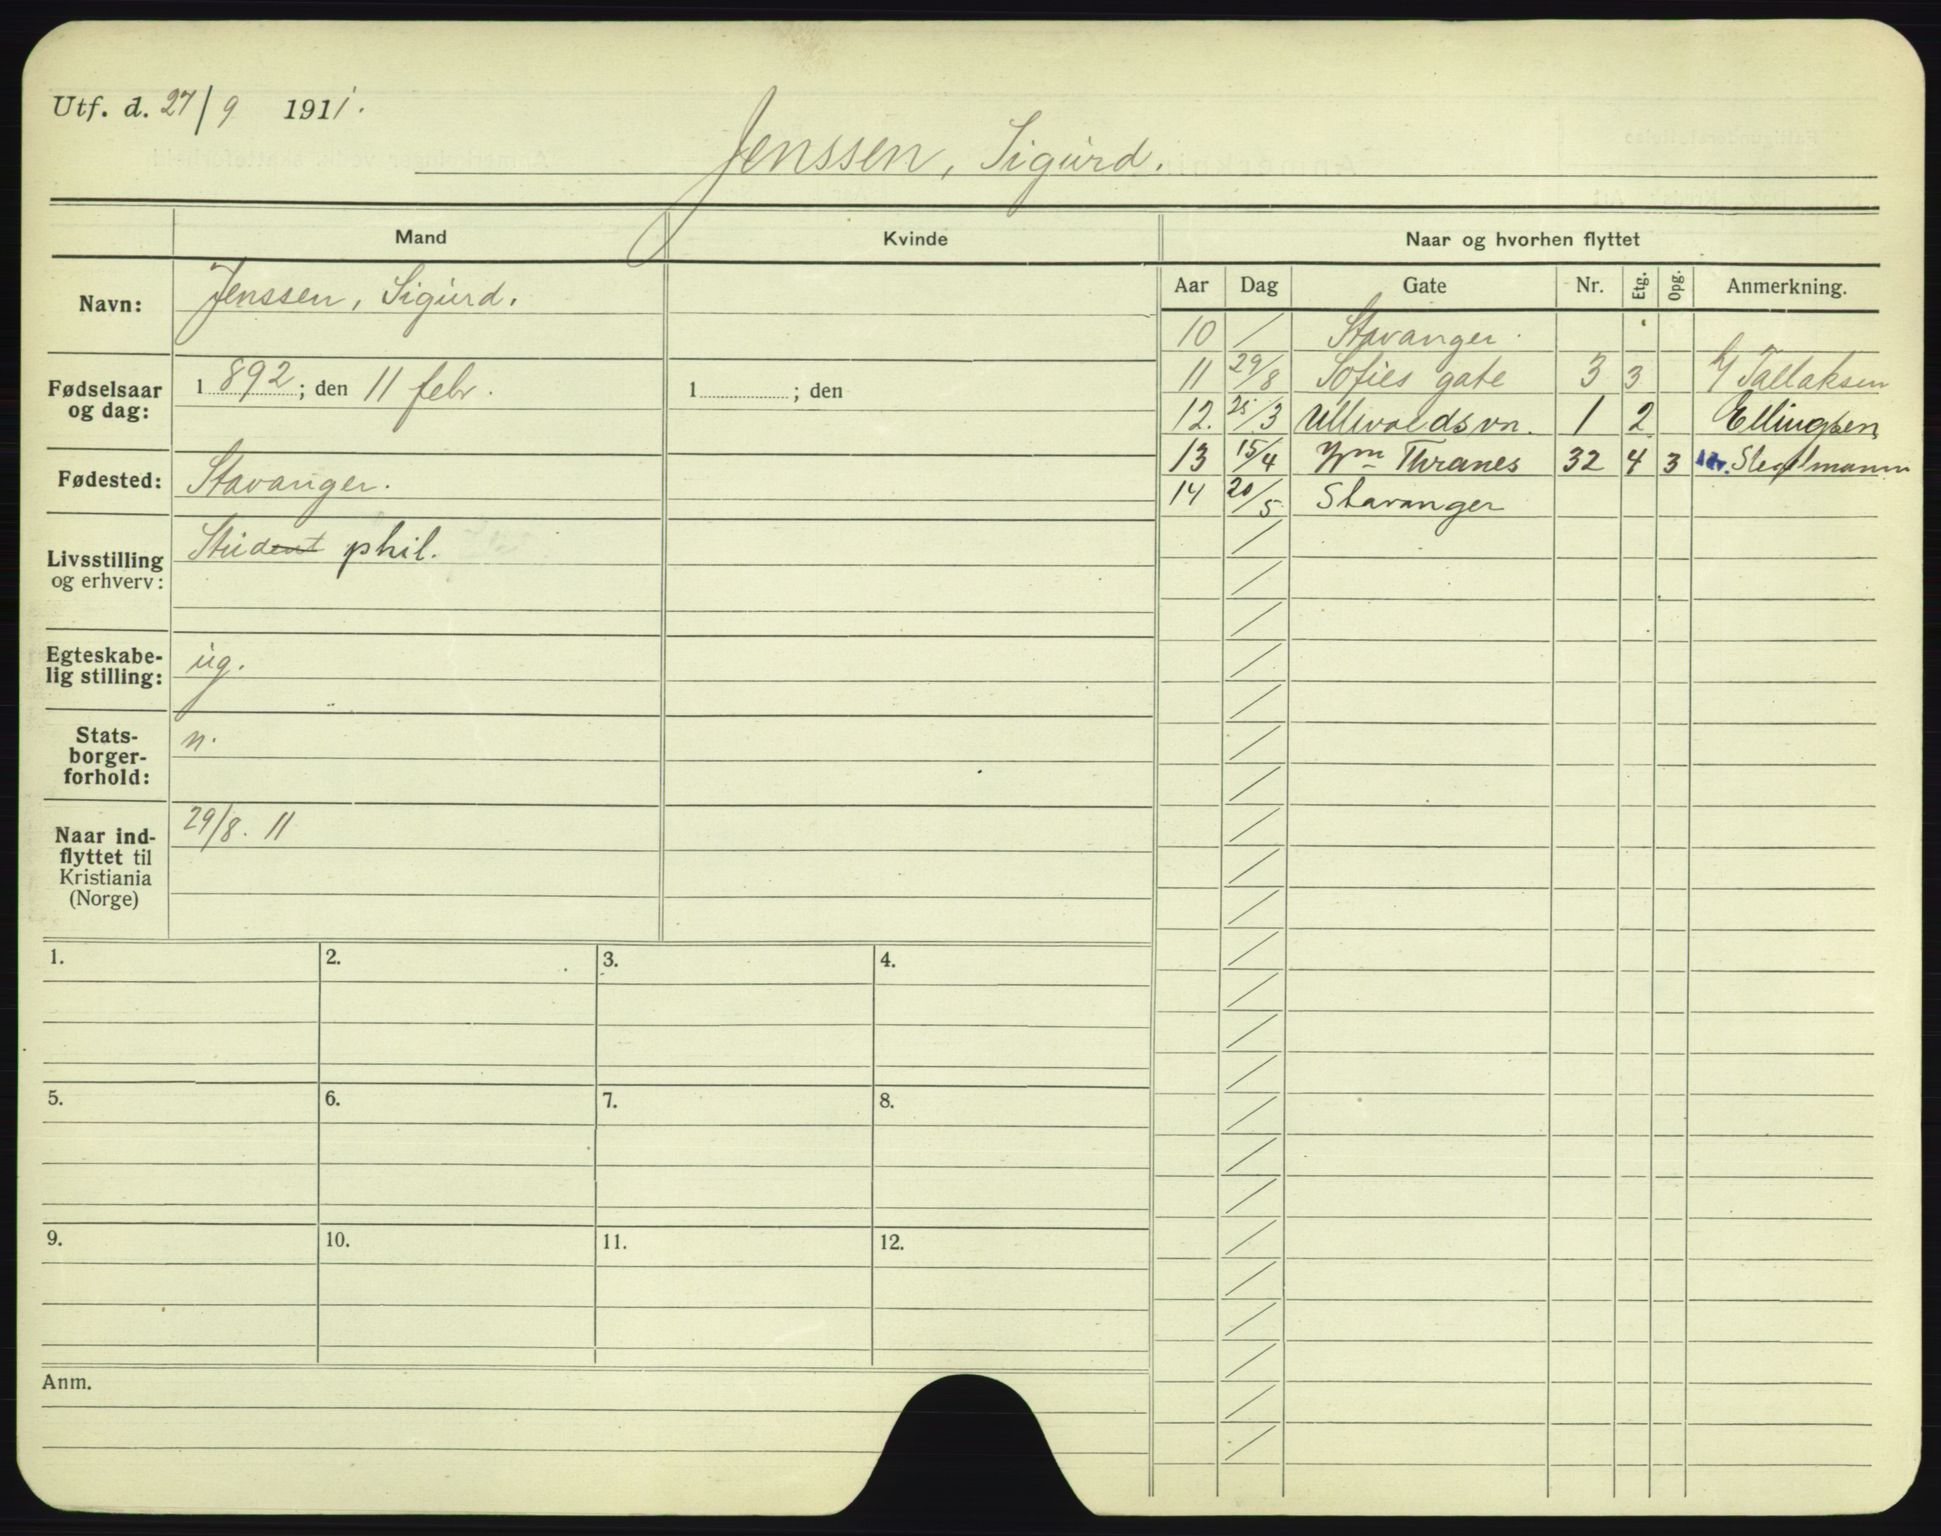 Utf. d. 27/9 1911.
Jenssen, Sigurd.
Mand Kvinde Naar og hvorhen flyttet
Navn: Jenssen, Sigurd.
Fødselsaar og dag: 1892; den 11 febr. 1 ; den
Fødested: Stavanger.
Livsstilling og erhverv: Student phil.
Egteskabe-
lig stilling: ug.
Stats-
borger-
forhold: n.
Naar ind-
flyttet til
Kristiania
(Norge) 29/8. 11
Aar Dag Gate Nr. Etg. Opg. Anmerkning.
10 / Stavanger.
11 29/8 Sofies gate 3 3 Tallaksen
12. 25/3 Ullevoldsvn. 1 2 Ellingsen
13 15/4 Thranes 32 4 3
14 20/5 Stavanger
1. 2. 3. 4.
5. 6. 7. 8.
9. 10. 11. 12.
Anm.